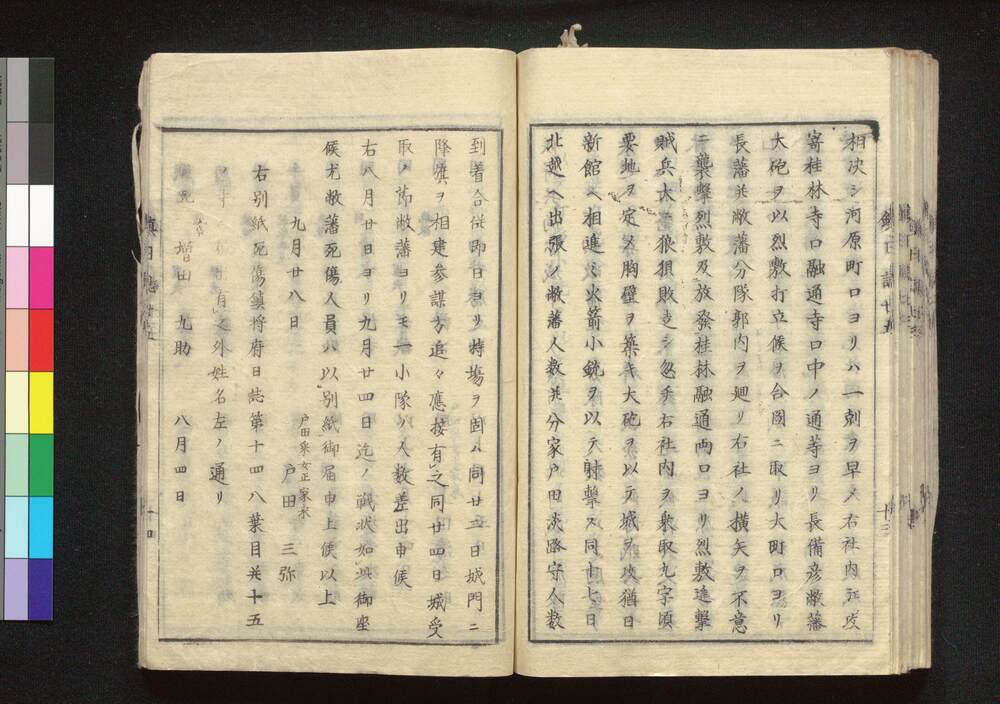 相決シ河原町口ヨリハ一刻ヲ早メ右社内江攻
寄桂林寺口融通寺口中ノ通等ヨリ長備彦敝藩
大砲ヲ以烈敷打立候ヲ合図ニ取リ大町口ヨリ
長藩并敝藩分隊郭内ヲ廻リ右社ノ横矢ヲ不意
ニ襲撃烈敷及放發桂林融通両口ヨリ烈敷進撃
賊兵大ニ狼狽敗走シ忽チ右社内ヲ乗取九字頃
要地ヲ定メ胸壁ヲ築キ大砲ヲ以テ城ヲ攻猶日
新館ヘ相進ミ火箭小銃ヲ以テ射撃ス同十七日
北越ヘ出張ノ敝藩人数并分家戸田淡路守人数
到着合併即日ヨリ持場ヲ固ム同廿三日城門ニ
降旗ヲ相建参謀方追々應接有之同廿四日城受
取ノ節敝藩ヨリモ一小隊ノ人数差出申候
右八月廿日ヨリ九月廿四日迄ノ戦状如此御座
候尤敝藩死傷人員ハ以別紙御届申上候以上
九月廿八日
戸田采女正家来
戸田 三弥
右別紙死傷鎮将府日誌第十四八葉目并十五
有之外姓名左ノ通リ
増田 九助 八月四日